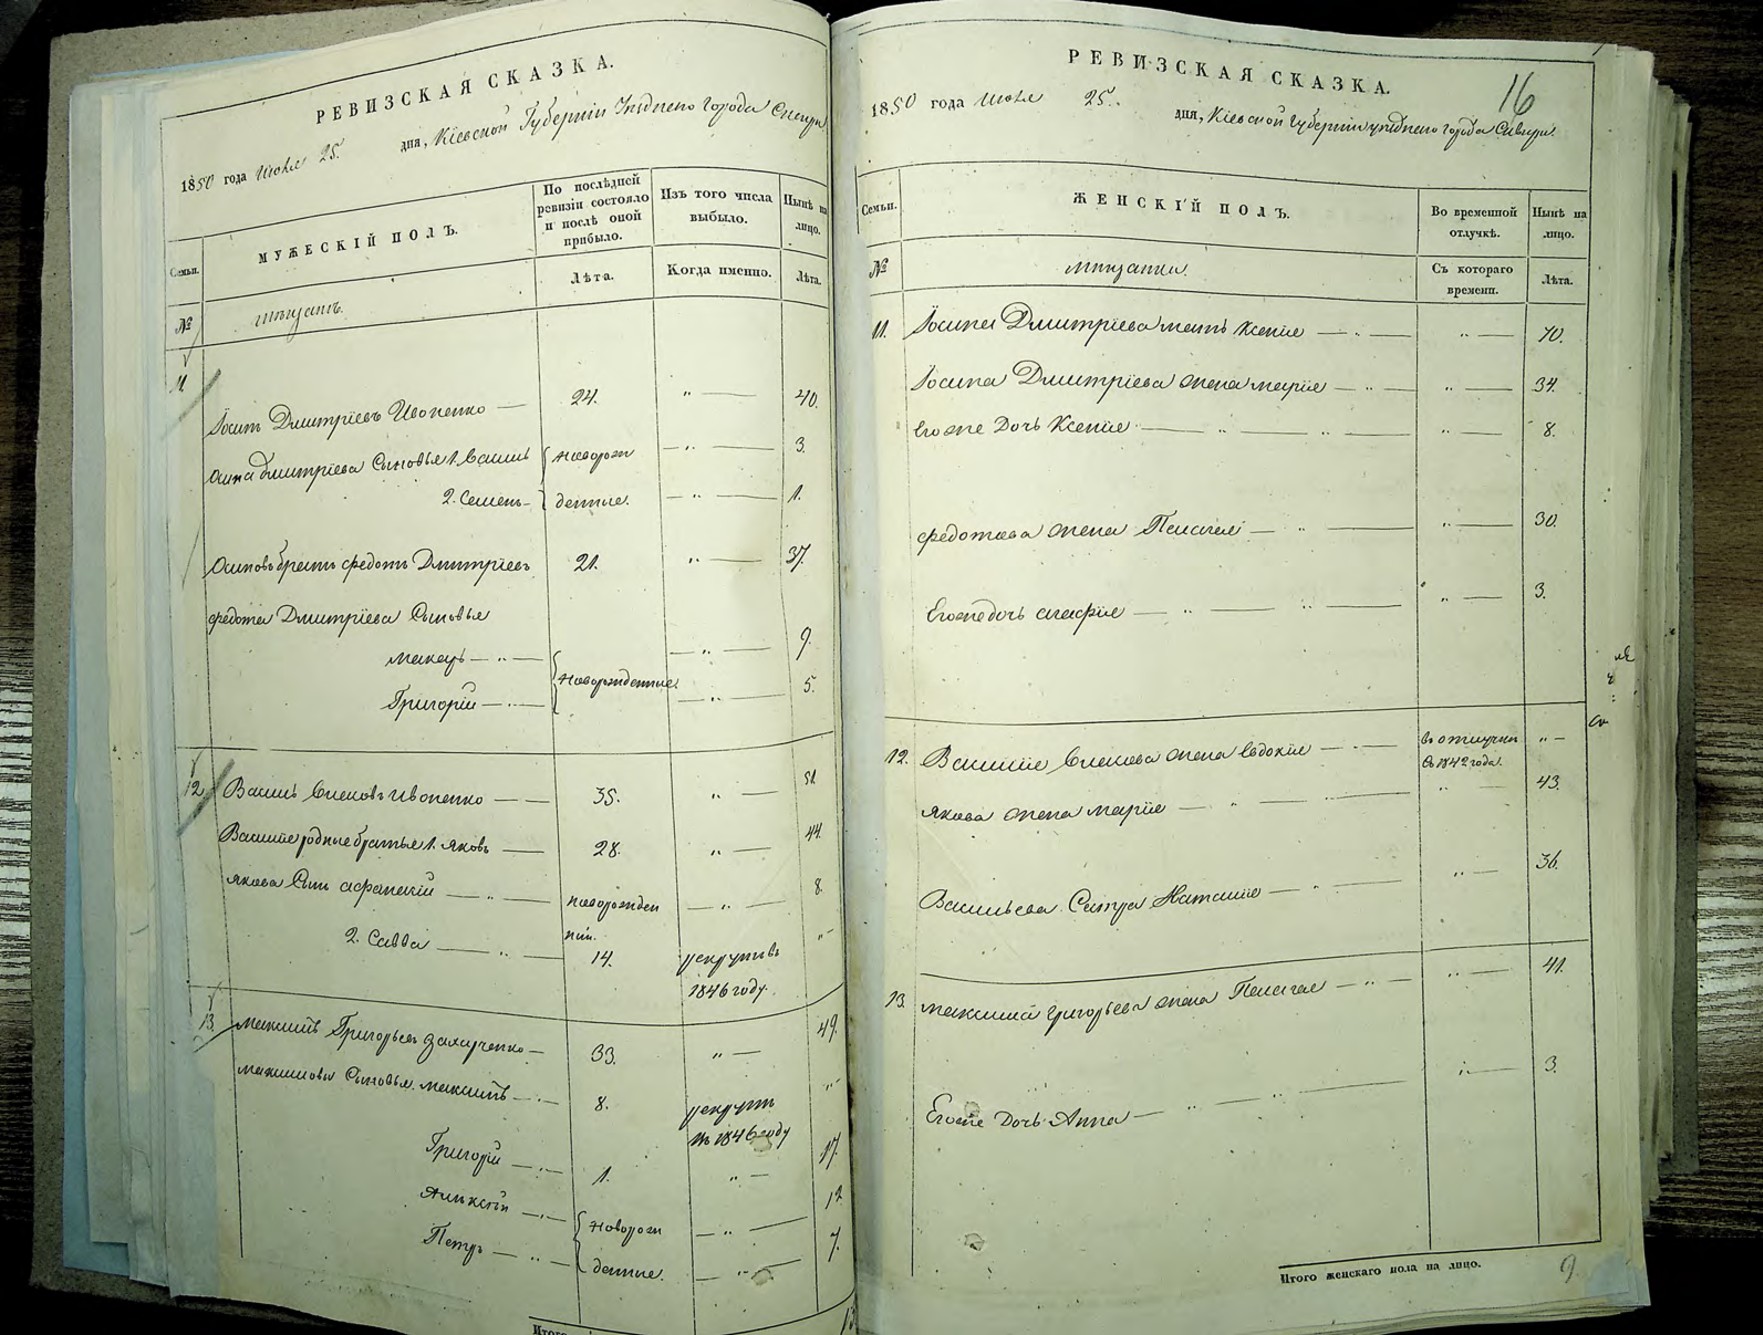 РЕВИЗСКАЯ СКАЗКА.
1850 года Июля 25. дня, Кіевской Губерніи Уѣзднаго города Сквиры
Семьи.
МУЖЕСКІЙ ПОЛЪ.
По послѣдней
ревизіи состояло
и послѣ оной
прибыло.
Изъ того числа
выбыло.
Нынѣ на
лицо.
№
мѣщанъ.
Лѣта.
Когда именно.
Лѣта.
11
Іосипъ Дмитріевъ Ивоненко — 24. „ — 40.
Дмитріева Сыновья 1. Василь новорож — „ — 3.
2. Семенъ — денные. — „ — 1.
Осиповъ братъ Федотъ Дмитріевъ 21. „ — 37.
Федота Дмитріева Сыновья
Макаръ — „ — 9.
новорожденные.
Григорій — „ — 5.
12. Василь Ивоненко — 35. „ — 51
Василія родные братья 1. Яковъ — 28. „ — 44.
Якова Сынъ Афанасій — „ — новорожден — „ — 8.
ный.
2. Савва — „ — 14. рекрутъ въ „ -
1846 году.
13. Максимъ Григорьевъ Захарченко — 33. „ — 49.
Максимовы Сыновья Максимъ — „ — 8. рекрутъ „ -
въ 1846 году
Григорій — „ — 1. „ — 17.
Алексѣй — „ — новорож — „ — 12
Петръ — „ — денные. — „ — 7.
Итого
13
РЕВИЗСКАЯ СКАЗКА.
16
1850 года Июля 25. дня, Кіевской Губерніи уѣзднаго города Сквиры.
Семьи.
ЖЕНСКІЙ ПОЛЪ.
Во временной
отлучкѣ.
Нынѣ на
лицо.
№
мѣщанки.
Съ котораго
времени.
Лѣта.
11. Іосипа Дмитріева мать Ксенія — „ — „ — 70.
Іосипа Дмитріева жена Марія — „ — „ — 34.
Его же Дочь Ксенія — „ — „ — „ — 8.
Федотова жена Пелагея — „ — „ — 30.
Его же дочь Агафія — „ — „ — „ — 3.
12. Василія жена Евдокія — „ — въ отлучки „ -
съ 1842 года.
Якова жена Марія — „ — „ — „ — 43.
Васильева Сестра Наталія — „ — „ — 36.
13. Максима Григорьева жена Пелагея — „ — „ — 41.
Его же Дочь Анна — „ — „ — „ — 3.
Итого женскаго пола на лицо. 9